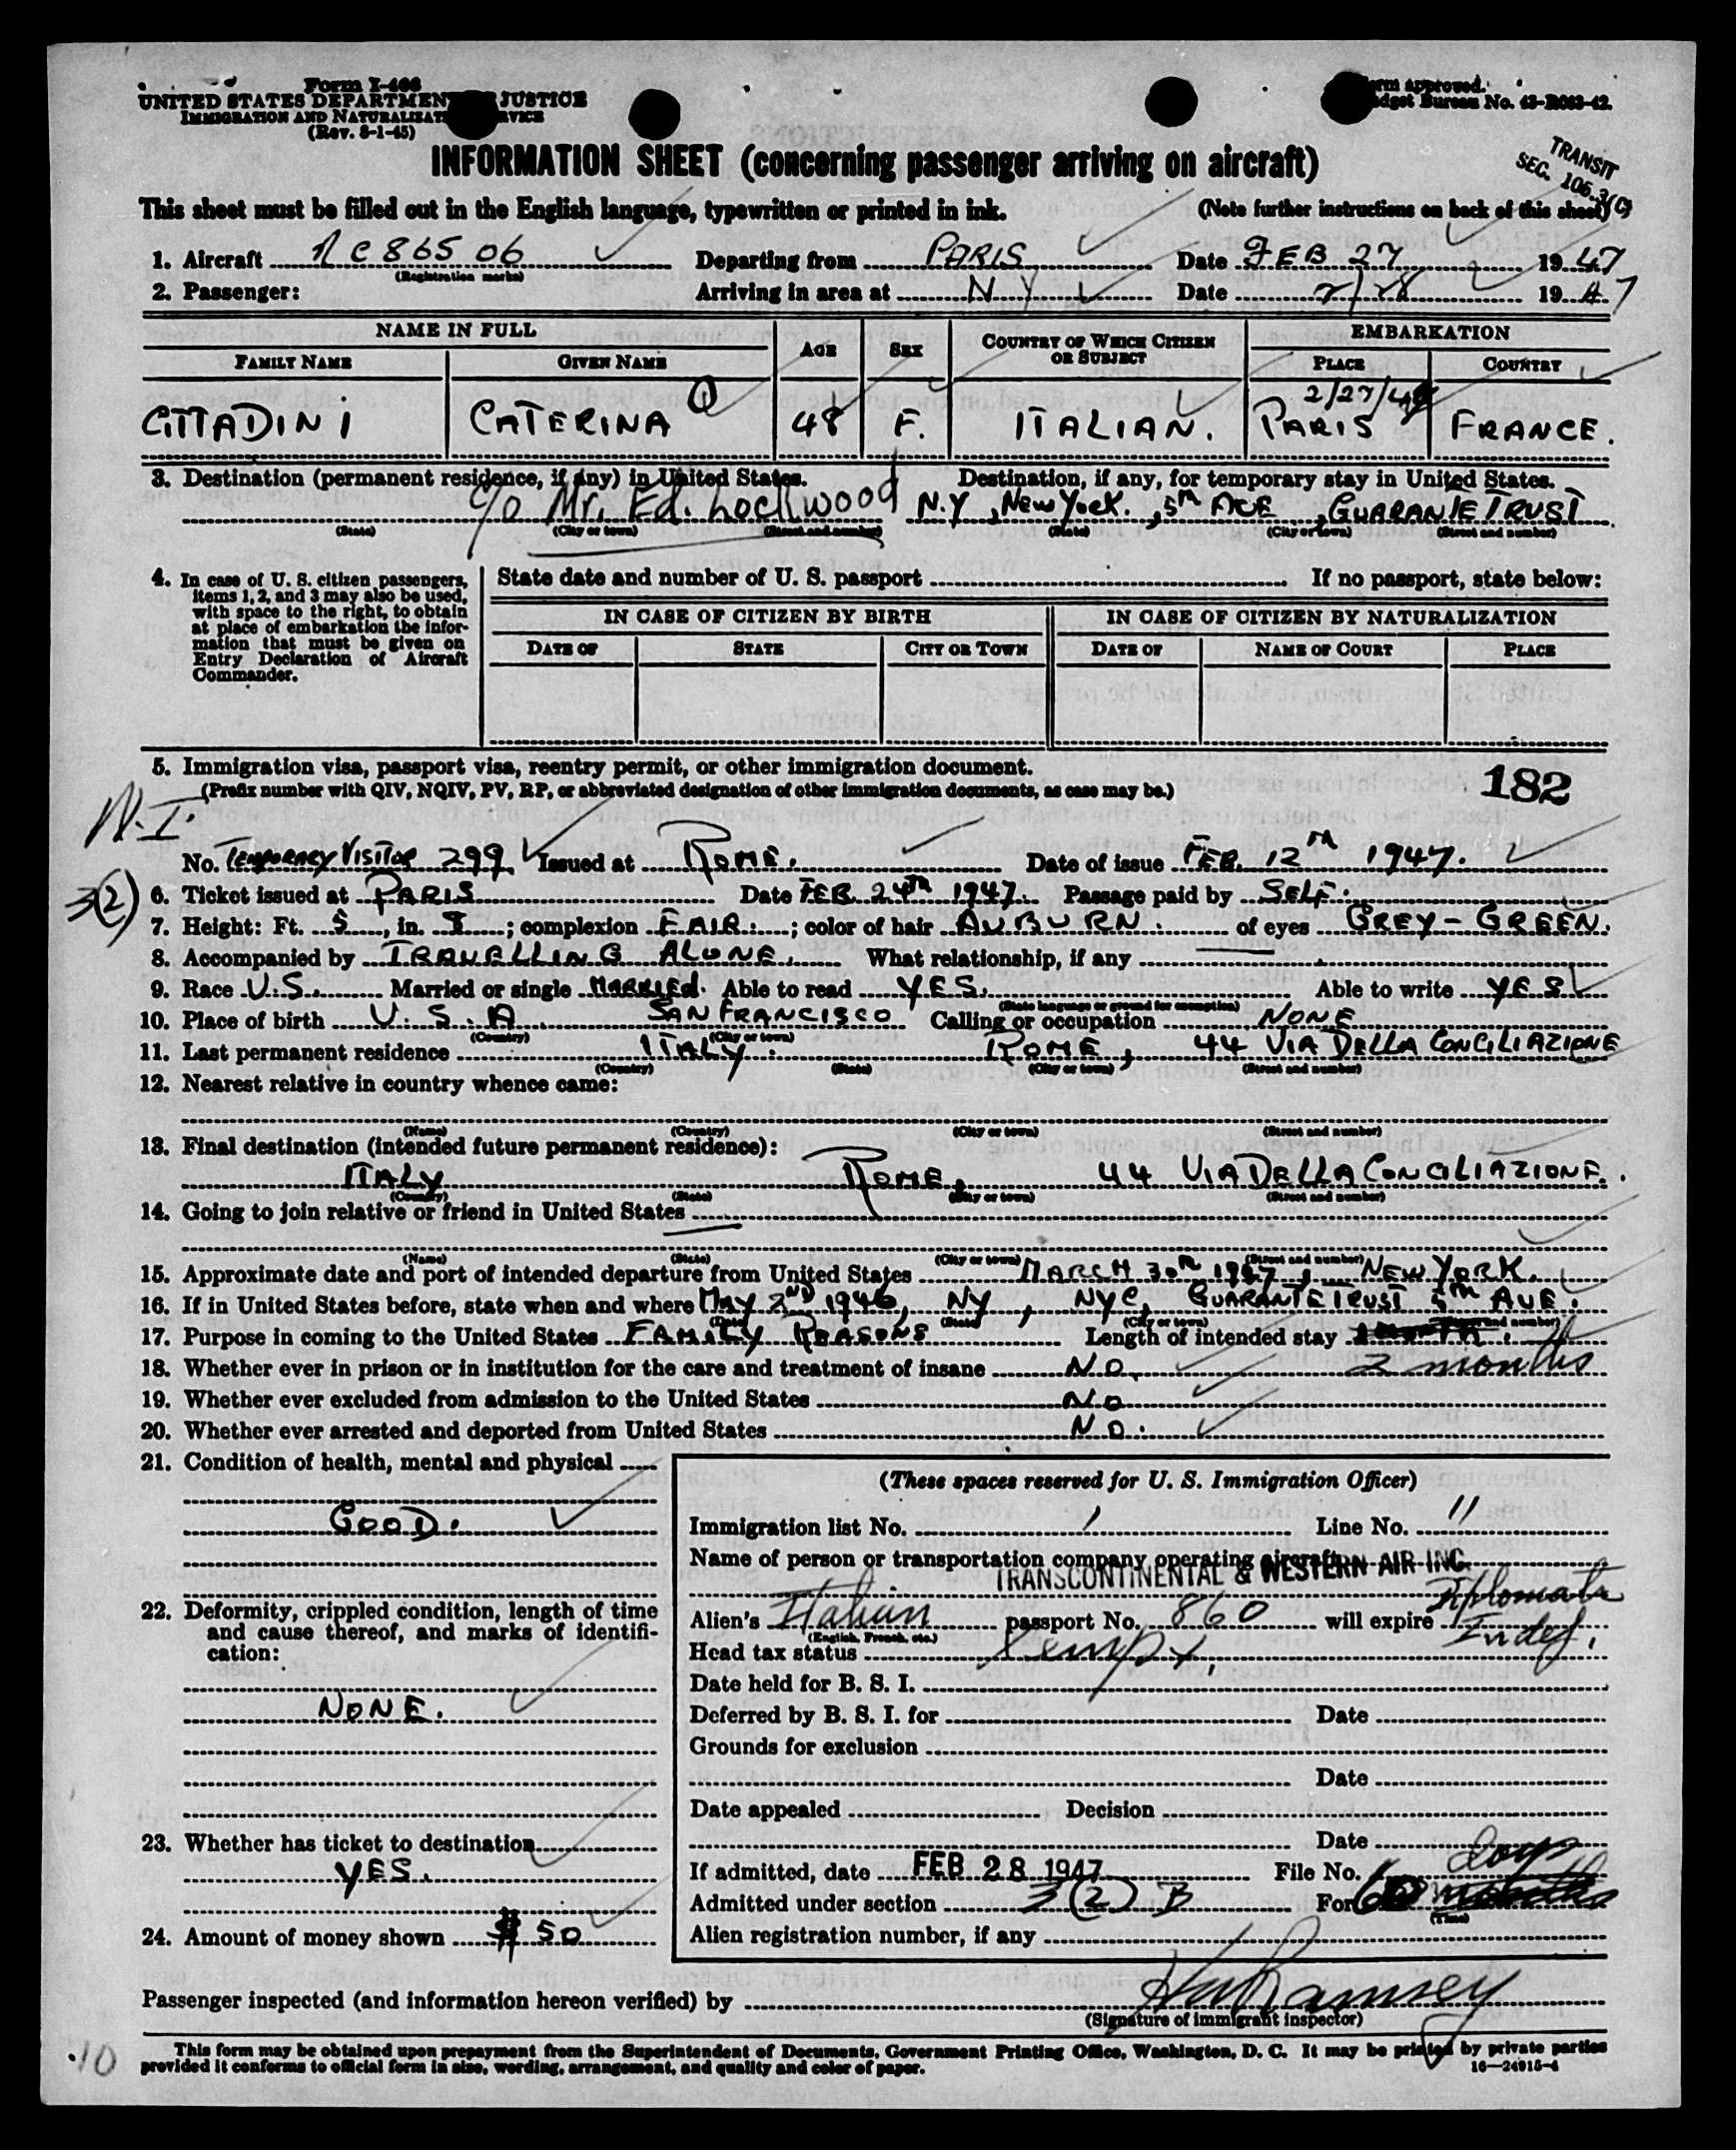 Form I-466
UNITED STATES DEPARTMENT JUSTICE
IMMIGRATION AND NATURALIZATION SERVICE
(Rev. 8-1-45)
Form approved.
Budget Bureau No. 43-R063-42.
INFORMATION SHEET (concerning passenger arriving on aircraft)
TRANSIT
SEC. 106.3(C)
This sheet must be filled out in the English language, typewritten or printed in ink. (Note further instructions on back of this sheet)
1. Aircraft NC86506 Departing from PARIS Date FEB 27 1947
(Registration marks)
2. Passenger: Arriving in area at NY Date 2/28 1947
NAME IN FULL AGE SEX COUNTRY OF WHICH CITIZEN OR SUBJECT EMBARKATION
FAMILY NAME GIVEN NAME PLACE COUNTRY
2/27/
CITTADINI CATERINA 48 F. ITALIAN. PARIS FRANCE.
3. Destination (permanent residence, if any) in United States. Destination, if any, for temporary stay in United States.
c/o Mr. Ed. Lockwood N.Y, New York, 5TH AVE, GUARANTE TRUST
(State) (City or town) (Street and number) (State) (City or town) (Street and number)
4. In case of U. S. citizen passengers, items 1, 2, and 3 may also be used, with space to the right, to obtain at place of embarkation the information that must be given on Entry Declaration of Aircraft Commander.
State date and number of U. S. passport If no passport, state below:
IN CASE OF CITIZEN BY BIRTH IN CASE OF CITIZEN BY NATURALIZATION
DATE OF STATE CITY OR TOWN DATE OF NAME OF COURT PLACE
5. Immigration visa, passport visa, reentry permit, or other immigration document.
(Prefix number with QIV, NQIV, PV, RP, or abbreviated designation of other immigration documents, as case may be.)
182
N.I.
No. TEMPORARY VISITOR 299 Issued at ROME. Date of issue FEB. 12TH 1947.
3(2)
6. Ticket issued at PARIS Date FEB. 24TH 1947. Passage paid by SELF.
7. Height: Ft. 5, in. 8; complexion FAIR.; color of hair AUBURN. of eyes GREY-GREEN.
8. Accompanied by TRAVELLING ALONE. What relationship, if any
9. Race U.S. Married or single MARRIED. Able to read YES. Able to write YES
(State language or ground for exemption)
10. Place of birth U.S.A. SAN FRANCISCO Calling or occupation NONE
(Country) (City or town)
11. Last permanent residence ITALY. ROME, 44 VIA DELLA CONCILIAZIONE
(Country) (State) (City or town) (Street and number)
12. Nearest relative in country whence came:
(Name) (Country) (City or town) (Street and number)
13. Final destination (intended future permanent residence):
ITALY ROME, 44 VIA DELLA CONCILIAZIONE.
(Country) (State) (City or town) (Street and number)
14. Going to join relative or friend in United States
(Name) (State) (City or town) (Street and number)
15. Approximate date and port of intended departure from United States MARCH 30TH 1947, NEW YORK.
16. If in United States before, state when and where MAY 2ND 1946, NY, NYC, GUARANTE TRUST 5TH AVE.
(Date) (State) (City or town) (Street and number)
17. Purpose in coming to the United States FAMILY REASONS Length of intended stay
2 months
18. Whether ever in prison or in institution for the care and treatment of insane NO.
19. Whether ever excluded from admission to the United States NO
20. Whether ever arrested and deported from United States NO.
21. Condition of health, mental and physical
GOOD.
22. Deformity, crippled condition, length of time and cause thereof, and marks of identification:
NONE.
23. Whether has ticket to destination
YES.
24. Amount of money shown $ 50
(These spaces reserved for U. S. Immigration Officer)
Immigration list No. 1 Line No. 11
Name of person or transportation company operating aircraft
TRANSCONTINENTAL & WESTERN AIR INC.
Diplomatic
Alien's Italian passport No. 860 will expire Indef.
(English, French, etc.)
Head tax status Xempt.
Date held for B. S. I.
Deferred by B. S. I. for Date
Grounds for exclusion
Date
Date appealed Decision
Date
days
If admitted, date FEB 28 1947 File No.
Admitted under section 3(2) B For 60
(Time)
Alien registration number, if any
Passenger inspected (and information hereon verified) by Ramsey
(Signature of immigrant inspector)
This form may be obtained upon prepayment from the Superintendent of Documents, Government Printing Office, Washington, D. C. It may be printed by private parties
provided it conforms to official form in size, wording, arrangement, and quality and color of paper. 16—24915-4
10